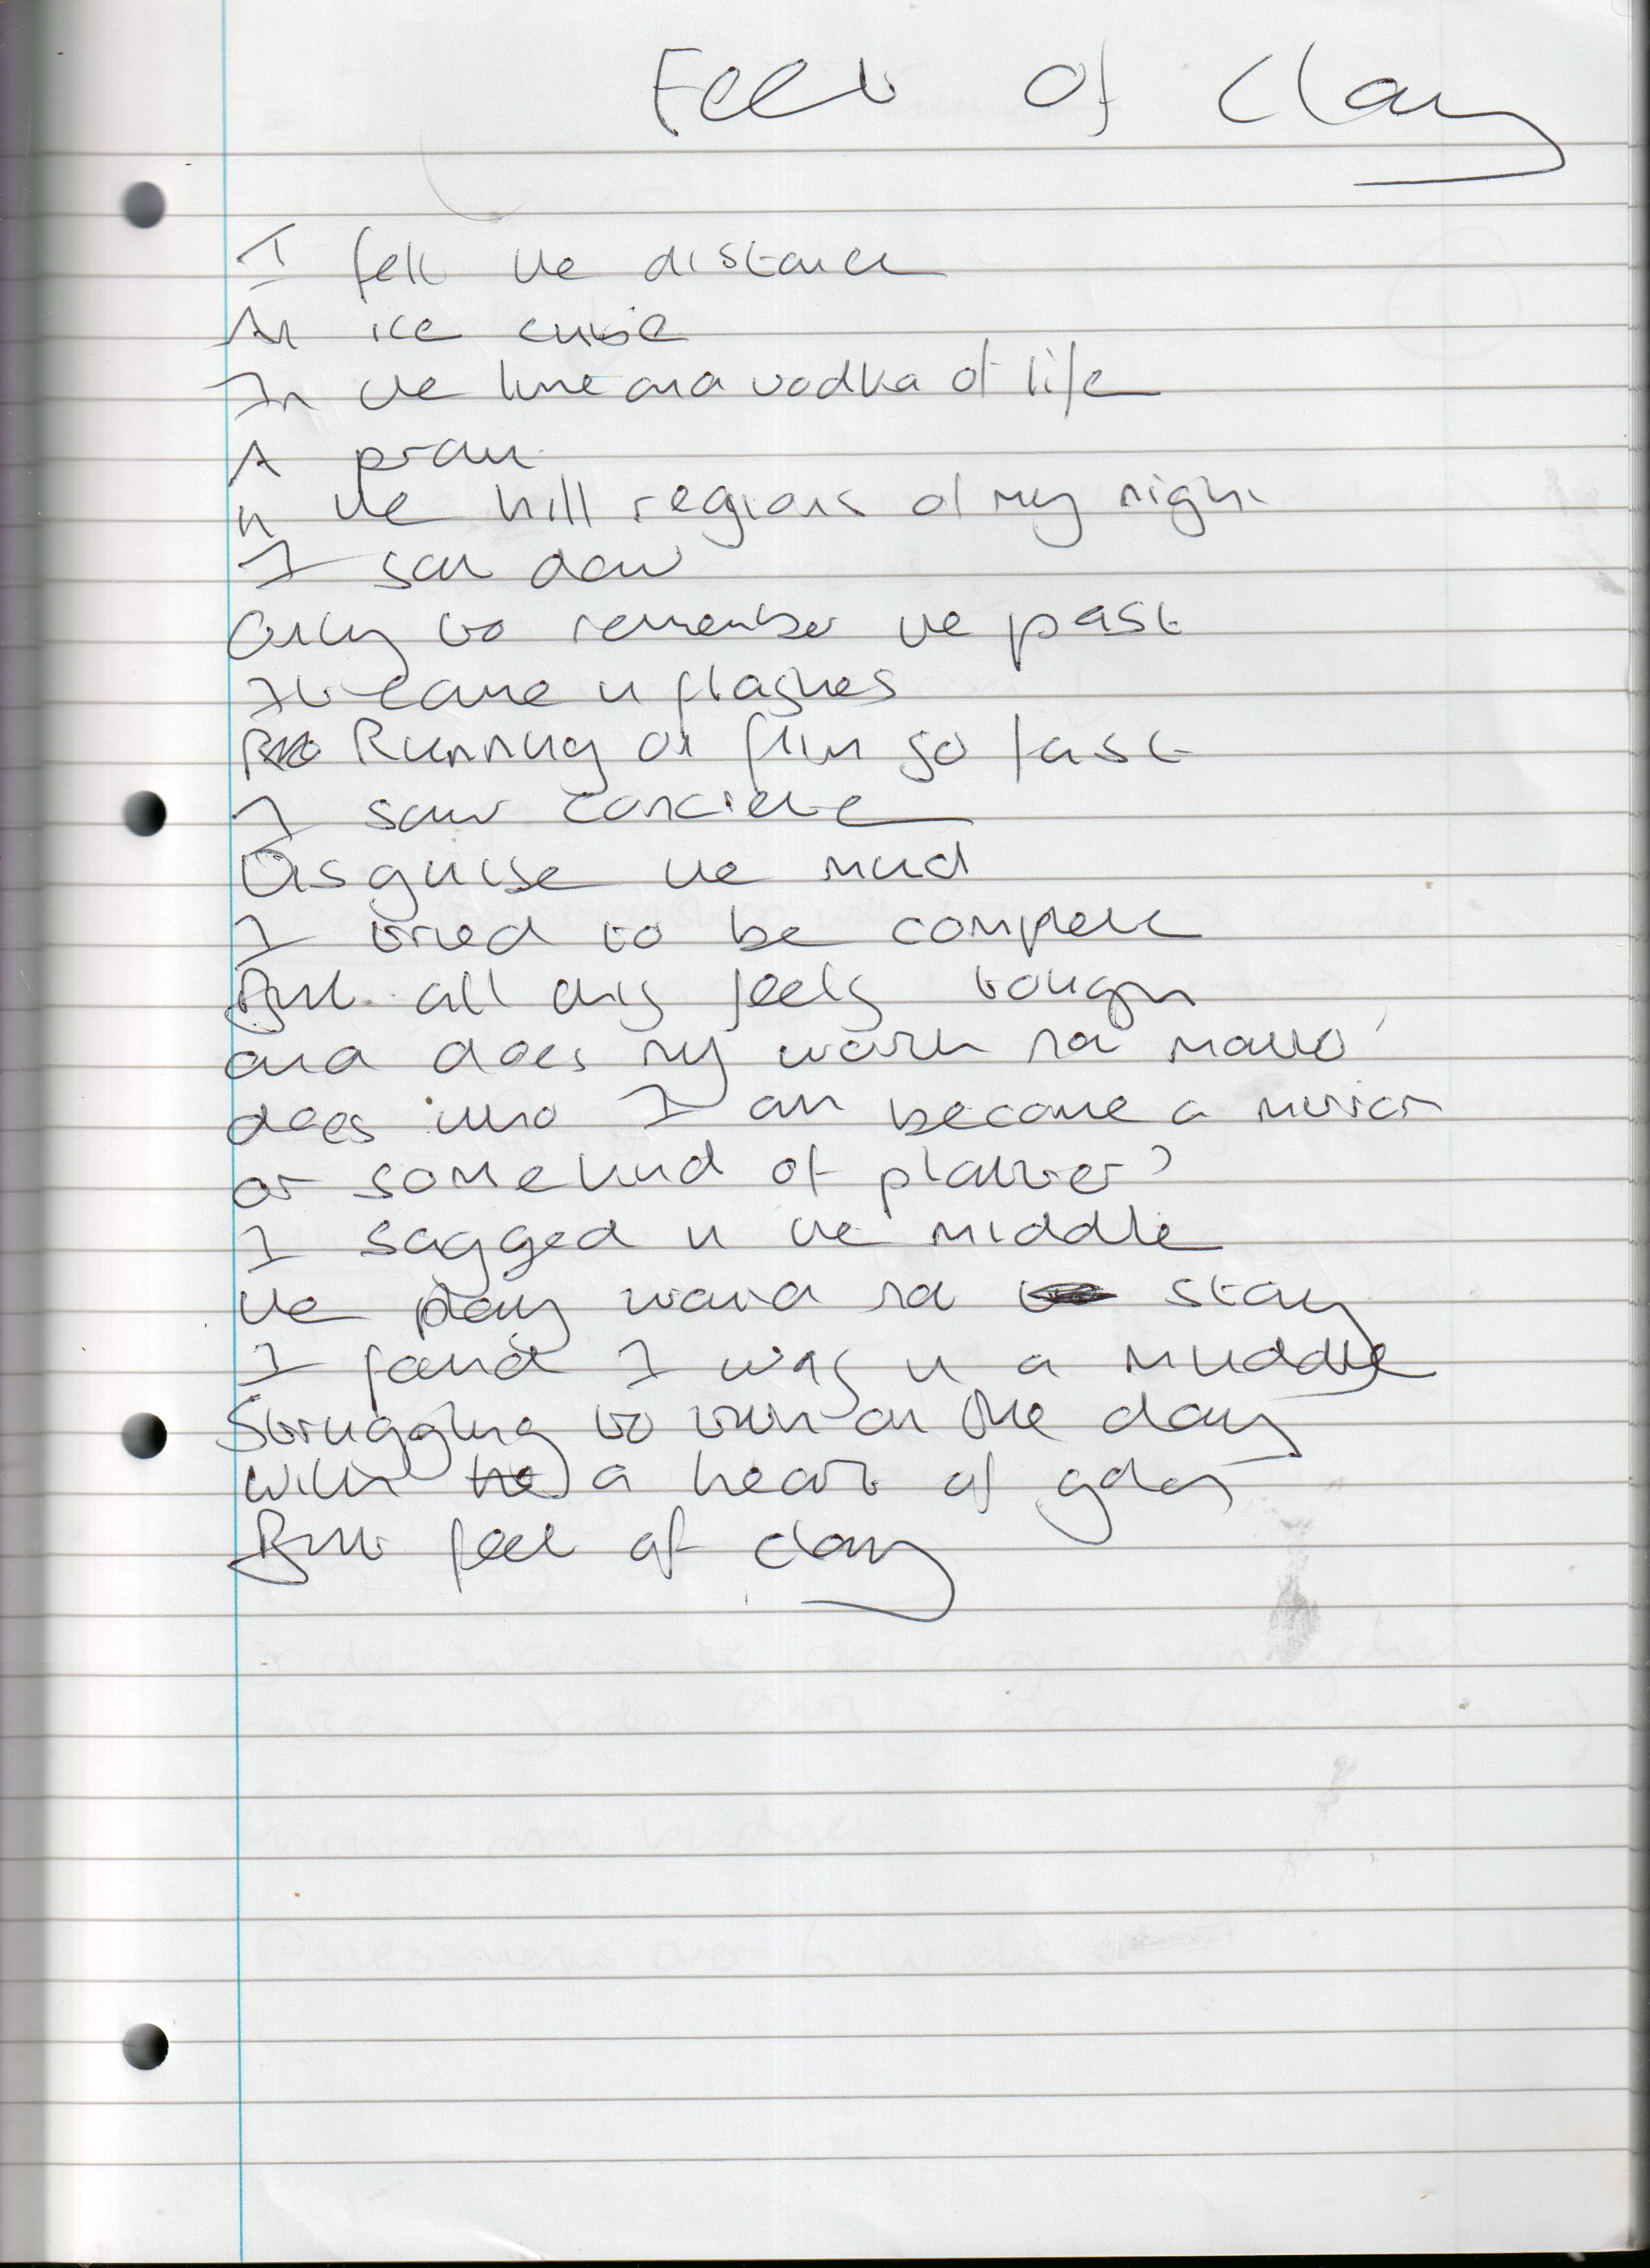 Feet of Clay
I felt the distance
An ice cube
In the lime and vodka of life
A
in the hill regions of my night
I sat down
Only to remember the past
It came in flashes
Running on film so fast
I saw concrete
Disguise the mud
I tried to be complete
But all this feels tough
and does my work not matter
does who I am become a mirror
or some kind of platter?
I sagged in the middle
the play would not stay
I found I was in a muddle
Struggling to turn on the day
with a heart of gold
But feet of clay